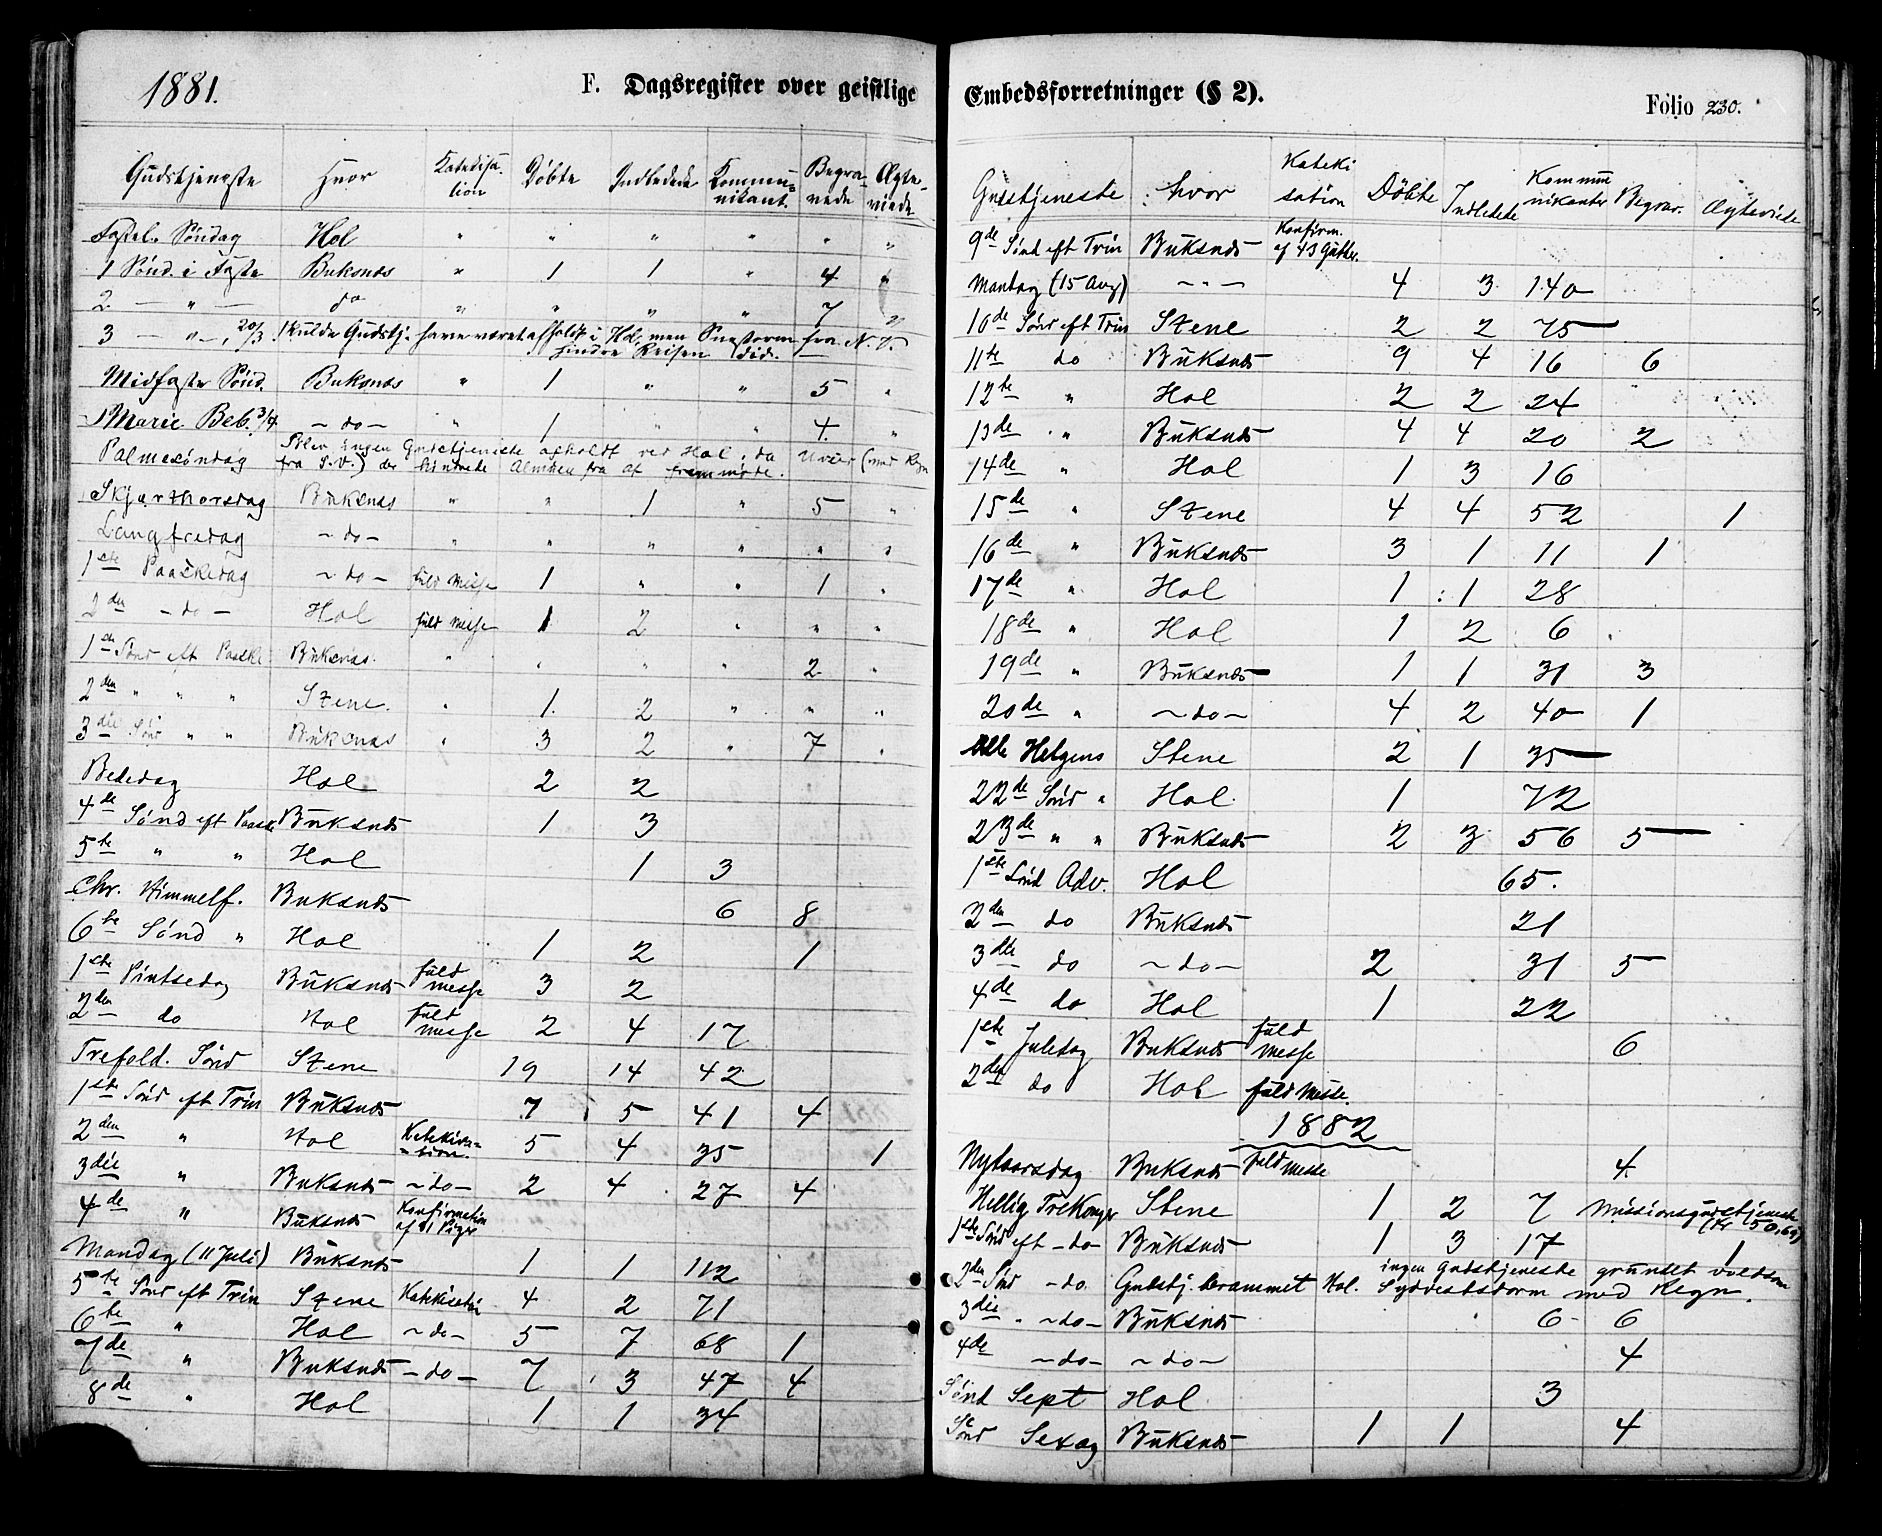 1881.
F. Dagsregister over geistlige
Gudstjeneste Hvor Katekisa-tion Døbte Indledede Kommu-nikant. Begra-vede Ægte-viede
Fastel. Søndag Hol " " " " " "
1 Sønd. i Faste Buksnæs " 1 1 " 4 "
2 — " — do " " " " 7 "
3 — " — 20/3 skulde Gudstj. have været afholdt i Hol, men Snestorm fra N.V.
hindre Reisen did.
Midfaste Sønd. Buksnæs " 1 " " 5 "
Marie Beb. 3/4 – do – " 1 " " 4 "
Palmesøndag Blev ingen Gudstjeneste afholdt ved Hol, da Uveir (med Regn
fra S.V.) de hindrede Almuen fra at fremmøde.
Skjærthorsdag Buksnæs " " 1 " 5 "
Langfredag – do – " " " " " "
1ste Paaskedag – do – fuld Messe 1 " " 1 "
2den – do – Hol fuld Messe 1 2 " " "
1ste Sønd eft Paaske Buksnæs. " " " " 2 "
2den " " " Stene. " 1. 2 " " "
3die Sønd " " Buksnæs " 3 2 " 7 "
Bededag Hol 2 2
4de Sønd eft Paaske Buksnæs 1 3
5te " " Hol 1 3
Chr. Himmelf. Buksnæs 6 8
6te Sønd " Hol 1 2 1
1ste Pintsedag Buksnæs fuld Messe 3 2
2den do Hol fuld Messe 2 4 17
Trefold. Sønd Stene 19 14 42
1ste Sønd eft Trin Buksnæs 7 5 41 4
2den " Hol Katekisa-tion. 5 4 35 1
3die " Buksnæs – do – 2 4 27 4
4de " Buksnæs Konfirmation af 41 Piger
Mandag (11 Juli) Buksnæs 1 1 112
5te Sønd eft Trin Stene 4 2 71
6te " Hol – do – 5 7 68 1
7de " Buksnæs – do – 7 3 47 4
8de " Hol 1 1 34
Embedsforretninger (§ 2).
Folio 230.
Gudstjeneste hvor Kateki sation Døbte Indledede Kommu nikanter Begrav. Ægteviede
9de Sønd eft Trin Buksnæs Konfirm. af 43 Gutter.
Mandag (15 Aug) – " – 4 3 140
10de Sønd eft Trin Stene 2 2 75
11te do Buksnæs 9 4 16 6
12te " Hol 2 2 24
13de " Buksnæs 4 4 20 2
14de " Hol 1 3 16
15de " Stene 4 4 52 1
16de " Buksnæs 3 1 11 1
17de " Hol 1 1 28
18de " Hol 1 2 6
19de " Buksnæs 1 1 31 3
20de " – do – 4 2 40 1
Alle Helgens Stene 2 1 35
22de Sønd " Hol 1 72
23de " " Buksnæs 2 3 56 5
1ste Sønd Adv. Hol 65.
2den do Buksnæs 21
3die do – do – 2 31 5
4de do Hol 1 22
1ste Juledag Buksnæs fuld Messe 6
2den do Hol fuld Messe.
1882
Nytaarsdag Buksnæs fuld Messe 4
Hellig Trekonger Stene 1 2 7 Missionsgudstjeneste
1ste Sønd eft – do – Buksnæs 1 3 17 1
2den Sønd – do. Gudstj. berammet Hol. ingen Gudstjeneste grundet voldsom
Sydveststorm med Regn.
3die " – do – Buksnæs 6 6
4de – do – – do – 4
Sønd Sept Hol 3
Sønd Sexag Buksnæs 1 1 4